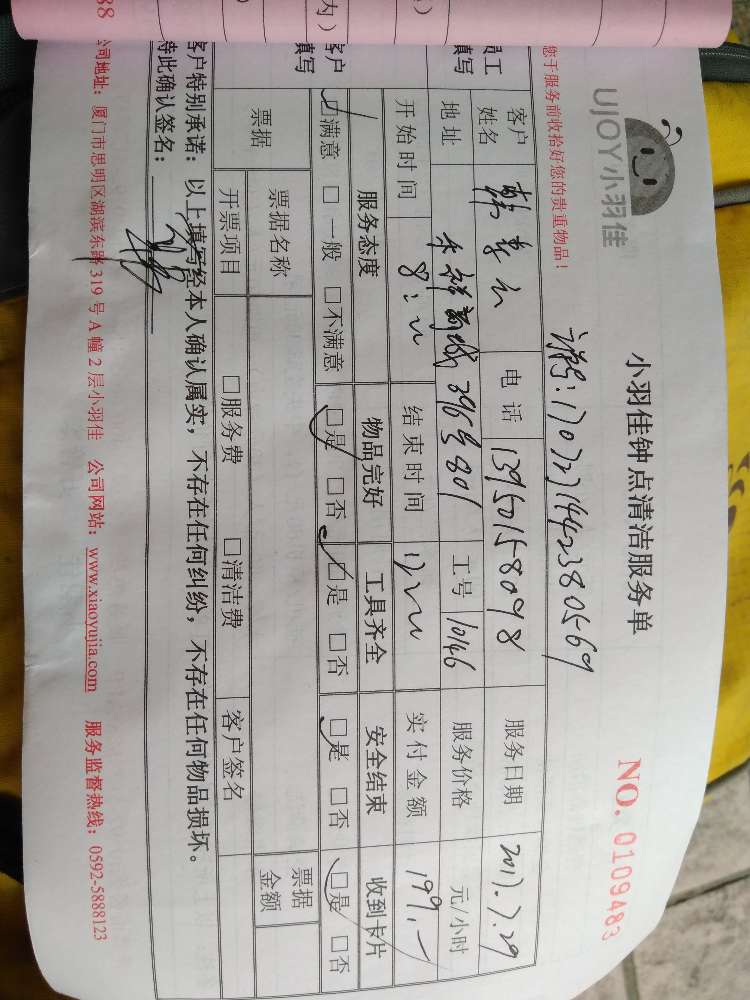 UJOY小羽佳
小羽佳钟点清洁服务单
NO. 0109483
您于服务前收拾好您的贵重物品！
订号: 1707271442380569
员工
填写
客户
姓名
电 话
13950158098
服务日期
2017.7.29
地址
禾祥新城 396号 801
工号
10146
服务价格
元/小时
开始时间
8:00
结束时间
12:00
实付金额
199.-
客户
填写
服务态度
物品完好
工具齐全
安全结束
收到卡片
☑满意 □一般 □不满意
☑是 □否
☑是 □否
☑是 □否
☑是 □否
票据
票据名称
票据
金额
开票项目
□服务费 □清洁费
客户签名
客户特别承诺：以上填写经本人确认属实，不存在任何纠纷，不存在任何物品损坏。
特此确认签名：
公司地址：厦门市思明区湖滨东路 319 号 A 幢 2 层小羽佳 公司网站：www.xiaoyujia.com 服务监督热线：0592-5888123
内）
88